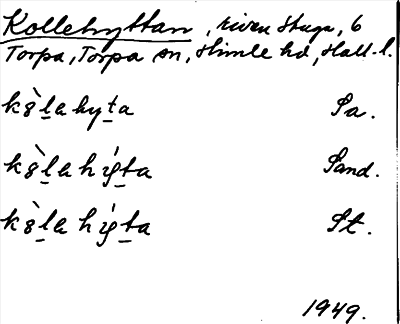 Kollehyttan, riven stuga, 6
Torpa, Torpa sn, Himle hd, Hall. l.
kòlahyta Sa.
kòlahýta Sand.
kòlahýta St.
1949.